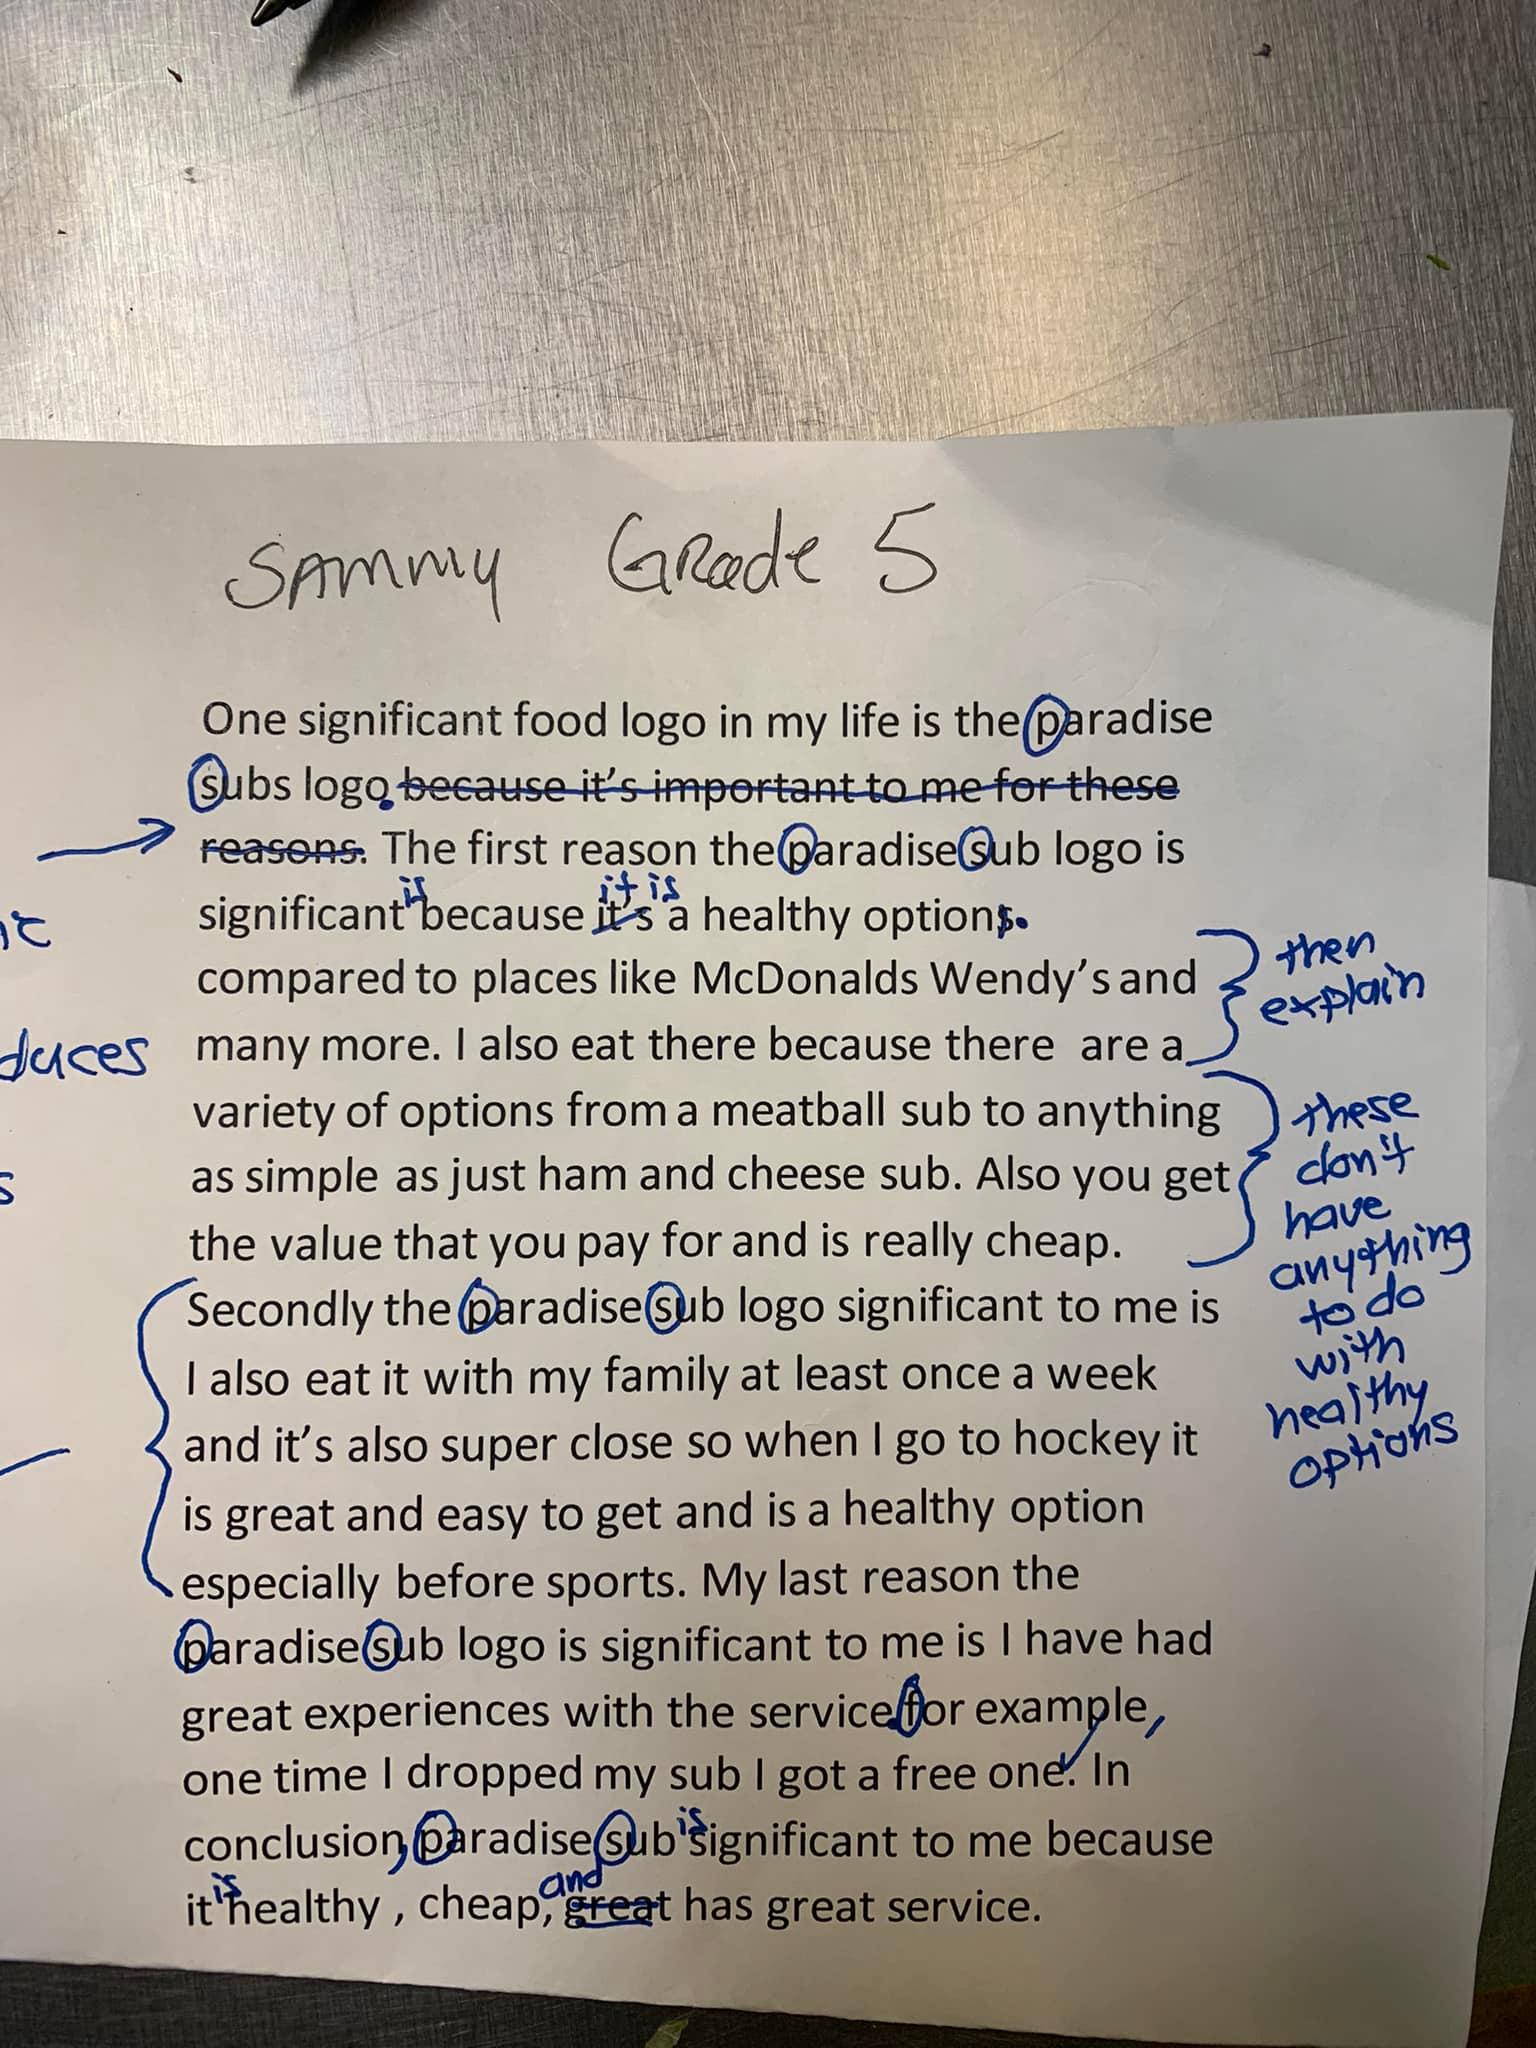 SAMMY Grade 5
One significant food logo in my life is the paradise
subs logo. because it's important to me for these
reasons. The first reason the paradise sub logo is
is it is
significant because it's a healthy option.
compared to places like McDonalds Wendy's and
then
explain
many more. I also eat there because there are a
duces
variety of options from a meatball sub to anything
as simple as just ham and cheese sub. Also you get
the value that you pay for and is really cheap.
these
don't
have
anything
to do
with
healthy
options
Secondly the paradise sub logo significant to me is
I also eat it with my family at least once a week
and it's also super close so when I go to hockey it
is great and easy to get and is a healthy option
especially before sports. My last reason the
paradise sub logo is significant to me is I have had
great experiences with the service. for example,
one time I dropped my sub I got a free one. In
is
conclusion, paradise sub significant to me because
is and
it healthy , cheap, great has great service.